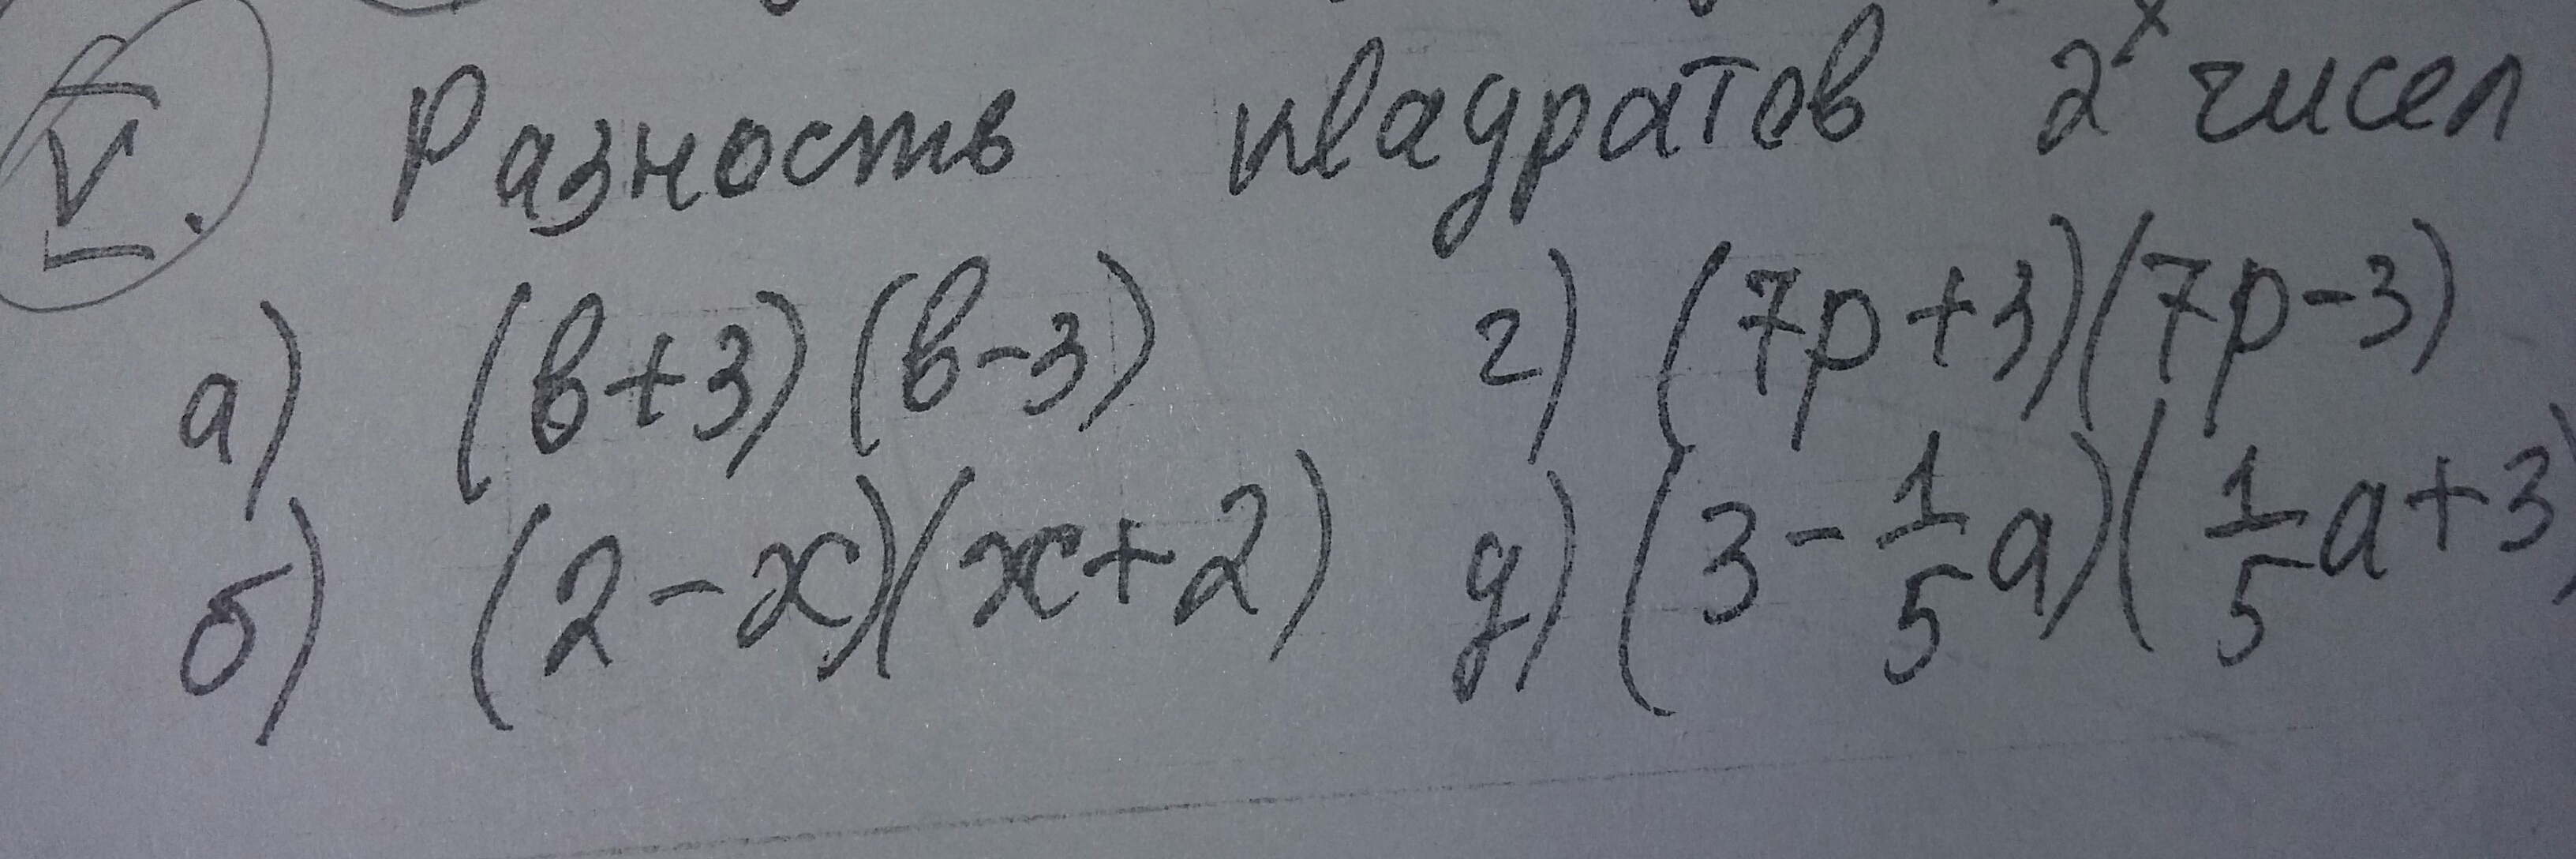 V. Разность квадратов 2х чисел
а) (в+3)(в-3) г) (7p+3)(7p-3)
б) (2-x)(x+2) д) (3-1/5a)(1/5a+3)